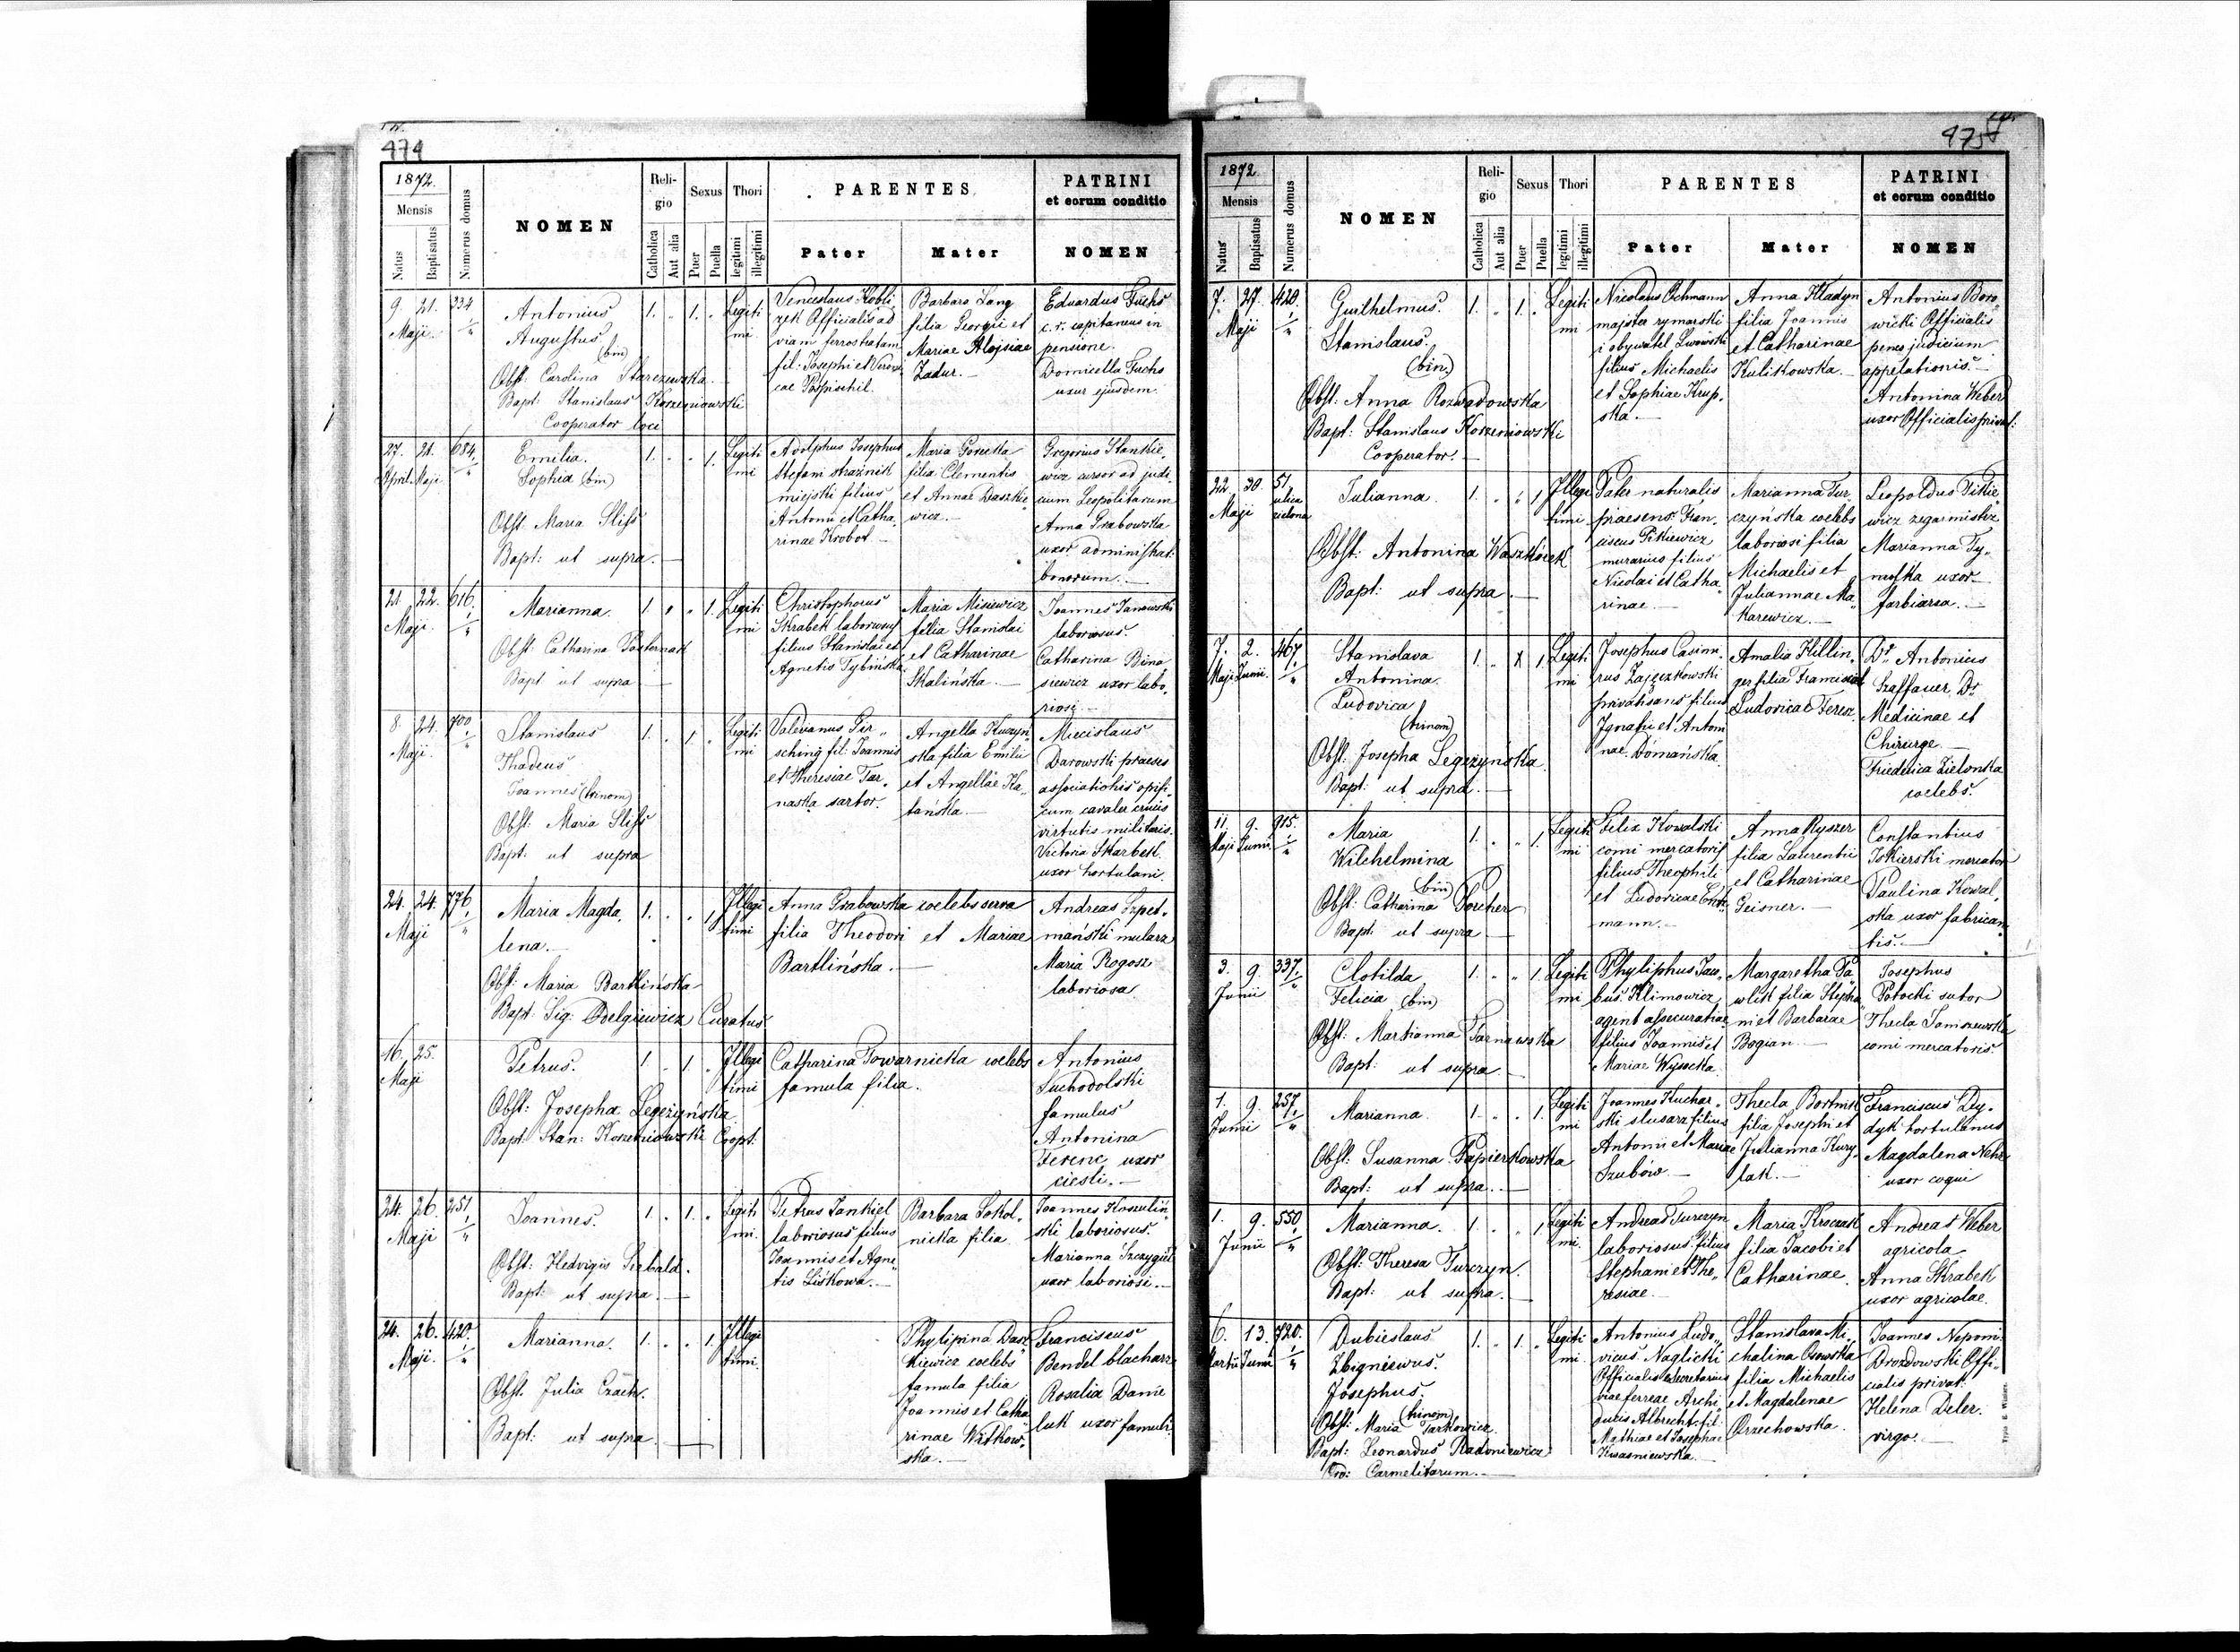 474
1872.
Mensis
Natus
Baptisatus
Numerus domus
NOMEN
Religio
Catholica
Aut alia
Sexus
Puer
Puella
Thori
legitimi
illegitimi
PARENTES
Pater
Mater
PATRINI
et eorum conditio
NOMEN
9. 21. 334
Maji
Antonius
Augustus
(bin)
Obst: Carolina Starczewska
Bapt: Stanislaus Korzeniowski
Cooperator loci
1. 1.
Legiti
mi
Venceslaus Kobli
zek Officialis ad
viam ferrostratam
fil: Josephi et Veroni
cae Pospischil.
Barbara Lang
filia Georgii et
Mariae Alojsiae
Zadur.
Eduardus Fuchs
c. r. capitaneus in
pensione.
Domicella Fuchs
uxor ejusdem.
27. 21. 684.
April. Maji
Emilia.
Sophia (bin)
Obst: Maria Sliss
Bapt: ut supra.
1. 1.
Legiti
mi
Adolphus Josephus
Stefani strażnik
miejski filius
Antonii et Catha
rinae Krobot.
Maria Gorecka
filia Clementis
et Annae Daszkie
wicz.
Gregorius Stankie
wicz cursor ad judi
cium Leopolitarum
Anna Grabowska
uxor administrat:
bonorum.
21. 22. 616.
Maji.
Marianna.
Obst: Catharina Pasternak
Bapt ut supra
1. 1.
Legiti
mi
Christophorus
Skrabek laboriosus
filius Stanislai et
Agnetis Tybińska
Maria Misiewicz
filia Stanislai
et Catharinae
Skalińska.
Joannes Janowski
laboriosus.
Catharina Bina
siewicz uxor labo,
riosi.
8. 24. 700
Maji.
Stanislaus
Thadeus
Joannes (trinom)
Obst: Maria Sliss
Bapt: ut supra
1. 1.
Legiti
mi
Valerianus Gir
sching fil: Joannis
et Theresiae Tar
naska sartor.
Angella Kuczyn
ska filia Emilii
et Angellae Ka
tańska.
Miecislaus
Darowski praeses
associationis opifi
cum cavaler crucis
virtutis militaris.
Victoria Skarbek
uxor hortulani.
24. 24. 776
Maji
Maria Magda,
lena.
Obst: Maria Bartlińska
Bapt: Sig: Odelgiewicz Curatus
1. 1.
Illegi
timi
Anna Grabowska coelebs serva
filia Theodori et Mariae
Bartlińska.
Andreas Szpet
mański mularz
Maria Rogosz
laboriosa
16. 25.
Maji
Petrus.
Obst: Josepha Legeżyńska
Bapt: Stan: Korzeniowski Coopt.
1. 1.
Illegi
timi
Catharina Towarnicka coelebs
famula filia.
Antonius
Suchodolski
famulus
Antonina
Ferenc uxor
ciesli.
24. 26. 251
Maji
Joannes.
Obst: Hedvigis Siebald.
Bapt: ut supra.
1. 1.
Legiti
mi.
Petrus Jankiel
laboriosus filius
Joannis et Agne
tis Liśkowa.
Barbara Sokol
nicka filia
Joannes Kosculiń
ski laboriosus.
Marianna Szczygiel
uxor laboriosi.
24. 26. 420.
Maji.
Marianna.
Obst: Julia Czach.
Bapt: ut supra.
1. 1.
Illegi
timi.
Phylipina Dasz
kiewicz coelebs
famula filia
Joannis et Catha
rinae Witkow
ska.
Franciscus
Bendel blacharz
Rosalia Danie
luk uxor famuli
475
1872
Mensis
Natus
Baptisatus
Numerus domus
NOMEN
Religio
Catholica
Aut alia
Sexus
Puer
Puella
Thori
legitimi
illegitimi
PARENTES
Pater
Mater
PATRINI
et eorum conditio
NOMEN
7. 27. 420.
Maji
Guilhelmus.
Stanislaus.
(bin)
Obst: Anna Rozwadowska
Bapt: Stanislaus Korzeniowski
Cooperator.
1. 1.
Legiti
mi
Nicolaus Ochmann
majster rymarski
i obywatel Lwowski
filius Michaelis
et Sophiae Krup,
ska.
Anna Hladyn
filia Joannis
et Catharinae
Kulikowska.
Antonius Boro
wicki Officialis
penes judicium
appelationis.
Antonina Weber
uxor Officialis privat:
22. 30. 51
Maji
ulica
zielona
Julianna.
Obst: Antonina Waszkorek
Bapt: ut supra
1. 1
Illegi
timi
Pater naturalis
praesens Fran,
ciscus Pitkiewicz
murarius filius
Nicolai et Catha,
rinae.
Marianna Tur
czyńska coelebs
laboriosi filia
Michaelis et
Juliannae Ma
karewicz.
Leopoldus Pitkie
wicz zegarmistrz
Marianna Ty
uxor
farbiarza.
7. 2. 467
Maji Junii.
Stanislava
Antonina.
Ludovica
(trinom)
Obst: Josepha Legeżyńska
Bapt: ut supra.
1. X 1.
Legiti
mi
Josephus Casimi
rus Zajączkowski
privatisans filius
Ignatii et Antoni
nae Domańska.
Amalia Killin,
ger filia Francisci
Ludovicae Teresz.
Dr. Antonius
Szaffauer, Dr
Medicinae et
Chirurge.
Friederica Zielonka
coelebs.
11. 9. 915.
Maji Junii.
Maria
Wilchelmina
(bin)
Obst: Catharina Porcher
Bapt: ut supra
1. 1.
Legiti
mi
Felix Kowalski
comi mercatoris
filius Theophili
et Ludovicae
mann.
Anna Ryszer
filia Laurentii
et Catharinae
Geisner.
Constantius
Iskierski mercator
Paulina Kowal,
ska uxor fabrican
tis.
3. 9. 337.
Junii
Clotilda
Felicia (bin)
Obst: Martianna Tarnawska
Bapt: ut supra.
1. 1.
Legiti
mi
Phyliphus Jaco
bus Klimowicz
agent assecuratiae
filius Joannis et
Mariae Wysocka.
Margaretha Pa
wlik filia Stepha
ni et Barbarae
Bogian
Josephus
Potocki sutor
Thecla Janiszewska
comi mercatoris.
1. 9. 257.
Junii
Marianna.
Obst: Susanna Papierkowska
Bapt: ut supra.
1. 1.
Legiti
mi
Joannes Kuchar,
ski slusarz filius
Antonii et Mariae
Szubów
Thecla Bortnik
filia Josephi et
Julianna Kury,
lak.
Franciscus Dy,
dyk hortulanus
Magdalena Nehr
uxor coqui
1. 9. 550.
Junii
Marianna.
Obst: Theresa Turczyn.
Bapt: ut supra.
1. 1
Legiti
mi.
Andreas Turczyn
laboriosus filius
Stephani et The,
resiae.
Maria Kroczak
filia Jacobi et
Catharinae.
Andreas Weber
agricola
Anna Skrabek
uxor agricolae.
6. 13. 720.
Martii Junii
Dubieslaus
Zbigniewus.
Josephus.
(trinom)
Obst: Maria Tarkowicz.
Bapt: Leonardus Radoniewicz
Ord: Carmelitarum.
1. 1.
Legiti
mi.
Antonius Ludo
vicus Naglicki
Officialis Secretarius
viae ferreae Archi
ducis Albrecht: fil:
Mathiae et Josephae
Kwasniewska.
Stanislava Mi
chalina Osowska
filia Michaelis
et Magdalenae
Orzechowska.
Joannes Nepomi
Drozdowski Offi
cialis privat:
Helena Deler.
virgo.
Typis E. Winiarz